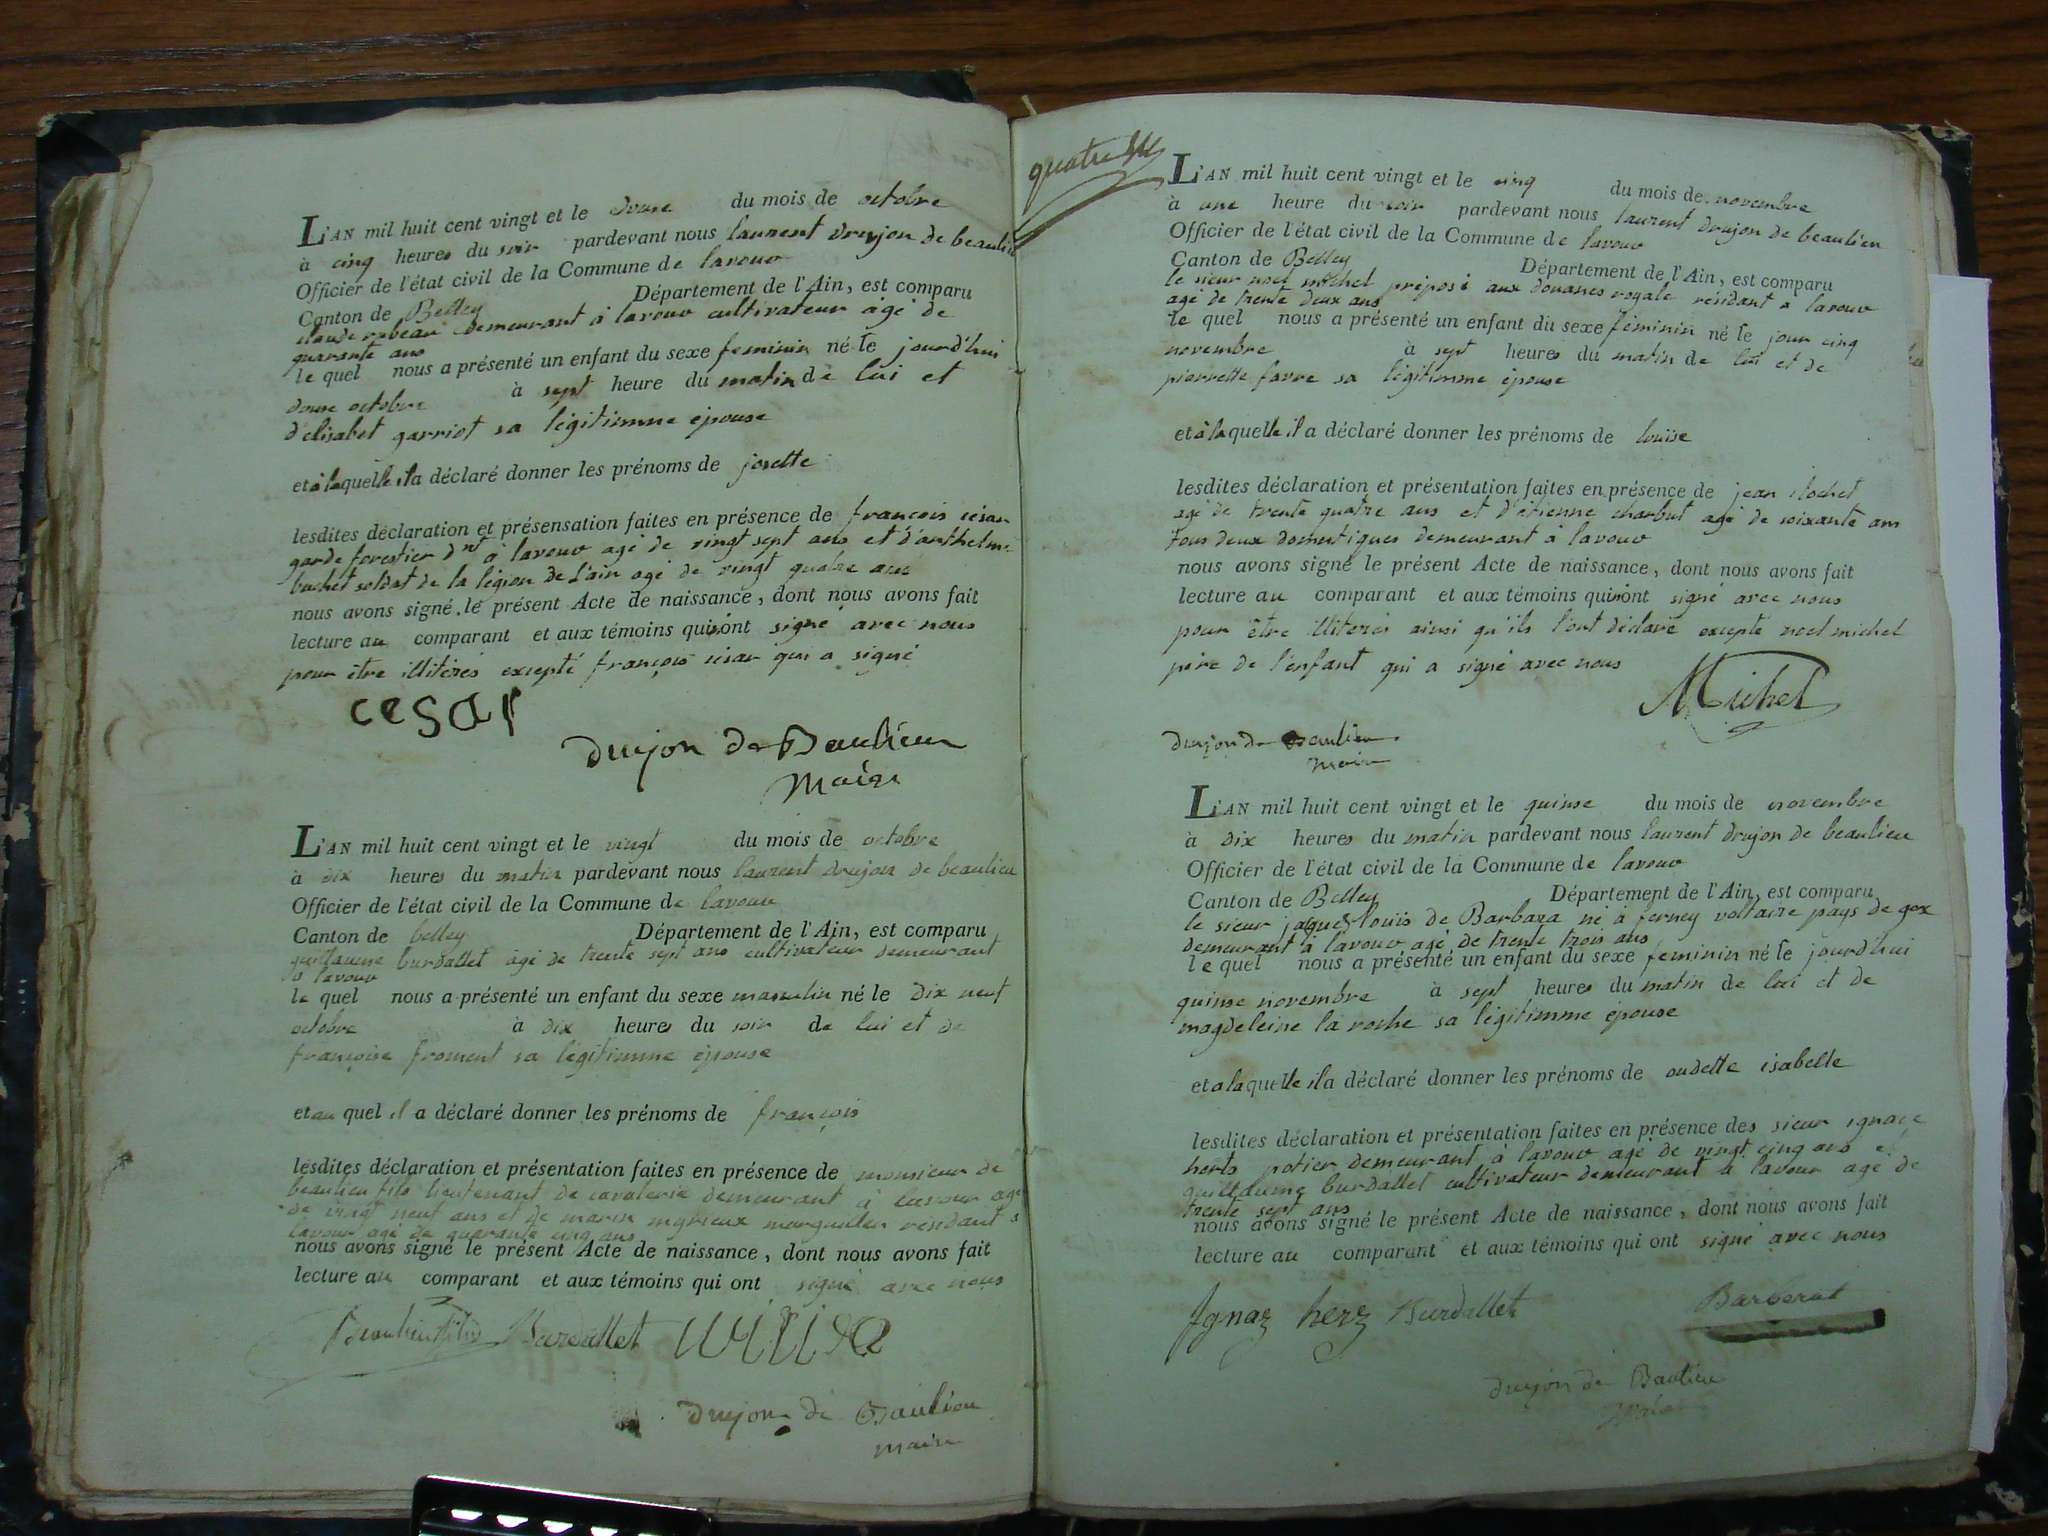 L'AN mil huit cent vingt et le douse du mois de octobre
à cinq heures du soir pardevant nous laurent drujon de beaulieu
Officier de l'état civil de la Commune de lavour
Canton de Belley Département de l'Ain, est comparu
claude rabeau demeurant à lavour cultivateur âgé de
quarante ans
le quel nous a présenté un enfant du sexe feminin né le jourd'hui
douse octobre à sept heure du matin de lui et
d'élisabet garriot sa légitimme épouse
et à laquelle il a déclaré donner les prénoms de josette
lesdites déclaration et présensation faites en présence de françois césar
garde forestier dnt à lavour agé de vingt sept ans et d'anthelme
bochet soldat de la légion de l'ain agé de vingt quatre ans
nous avons signé le présent Acte de naissance, dont nous avons fait
lecture au comparant et aux témoins qui n'ont signé avec nous
pour être illiterés excepté françois césar qui a signé
cesar
drujon de Baulieu
Maire
L'AN mil huit cent vingt et le vingt du mois de octobre
à dix heures du matin pardevant nous laurent drujon de beaulieu
Officier de l'état civil de la Commune de lavour
Canton de belley Département de l'Ain, est comparu
guillaume burdallet âgé de trente sept ans cultivateur demeurant
à lavour
le quel nous a présenté un enfant du sexe masculin né le dix neuf
octobre à dix heures du soir de lui et de
françoise froment sa légitimme épouse
et au quel il a déclaré donner les prénoms de françois
lesdites déclaration et présentation faites en présence de monsieur de
beaulieu fils lieutenant de cavalerie demeurant à lavour agé
de vingt neuf ans et de marin marguiller résidant à
lavour agé de quarante cinq ans
nous avons signé le présent Acte de naissance, dont nous avons fait
lecture au comparant et aux témoins qui ont signé avec nous
Beaulieu fils Burdallet
drujon de Baulieu
maire
L'AN mil huit cent vingt et le cinq du mois de novembre
à une heure du soir pardevant nous laurent drujon de beaulieu
Officier de l'état civil de la Commune de lavour
Canton de Belley Département de l'Ain, est comparu
le sieur noel michel préposé aux douanes royale résidant à lavour
agé de trente deux ans
le quel nous a présenté un enfant du sexe féminin né le jour cinq
novembre à sept heures du matin de lui et de
pierrette favre sa légitimme épouse
et à laquelle il a déclaré donner les prénoms de louise
lesdites déclaration et présentation faites en présence de jean
agé de trente quatre ans et d'étienne charbut agé de soixante ans
tous deux domestiques demeurant à lavour
nous avons signé le présent Acte de naissance, dont nous avons fait
lecture au comparant et aux témoins qui n'ont signé avec nous
pour être illiterés ainsi qu'ils l'ont déclaré excepté noel michel
père de l'enfant qui a signé avec nous
Michel
drujon de Baulieu
maire
L'AN mil huit cent vingt et le quinse du mois de novembre
à dix heures du matin pardevant nous laurent drujon de beaulieu
Officier de l'état civil de la Commune de lavour
Canton de Belley Département de l'Ain, est comparu
le sieur jaques louis de Barbara né à ferney voltaire pays de gex
demeurant à lavour agé de trente trois ans
le quel nous a présenté un enfant du sexe feminin né le jourd'hui
quinse novembre à sept heures du matin de lui et de
magdeleine la roche sa légitimme épouse
et a laquelle il a déclaré donner les prénoms de oudette isabelle
lesdites déclaration et présentation faites en présence des sieur ignace
herts potier demeurant à lavour agé de vingt cinq ans et
guillaume burdallet cultivateur demeurant à lavour agé de
trente sept ans
nous avons signé le présent Acte de naissance, dont nous avons fait
lecture au comparant et aux témoins qui ont signé avec nous
Ignaz herz Burdallet Barberat
drujon de Baulieu